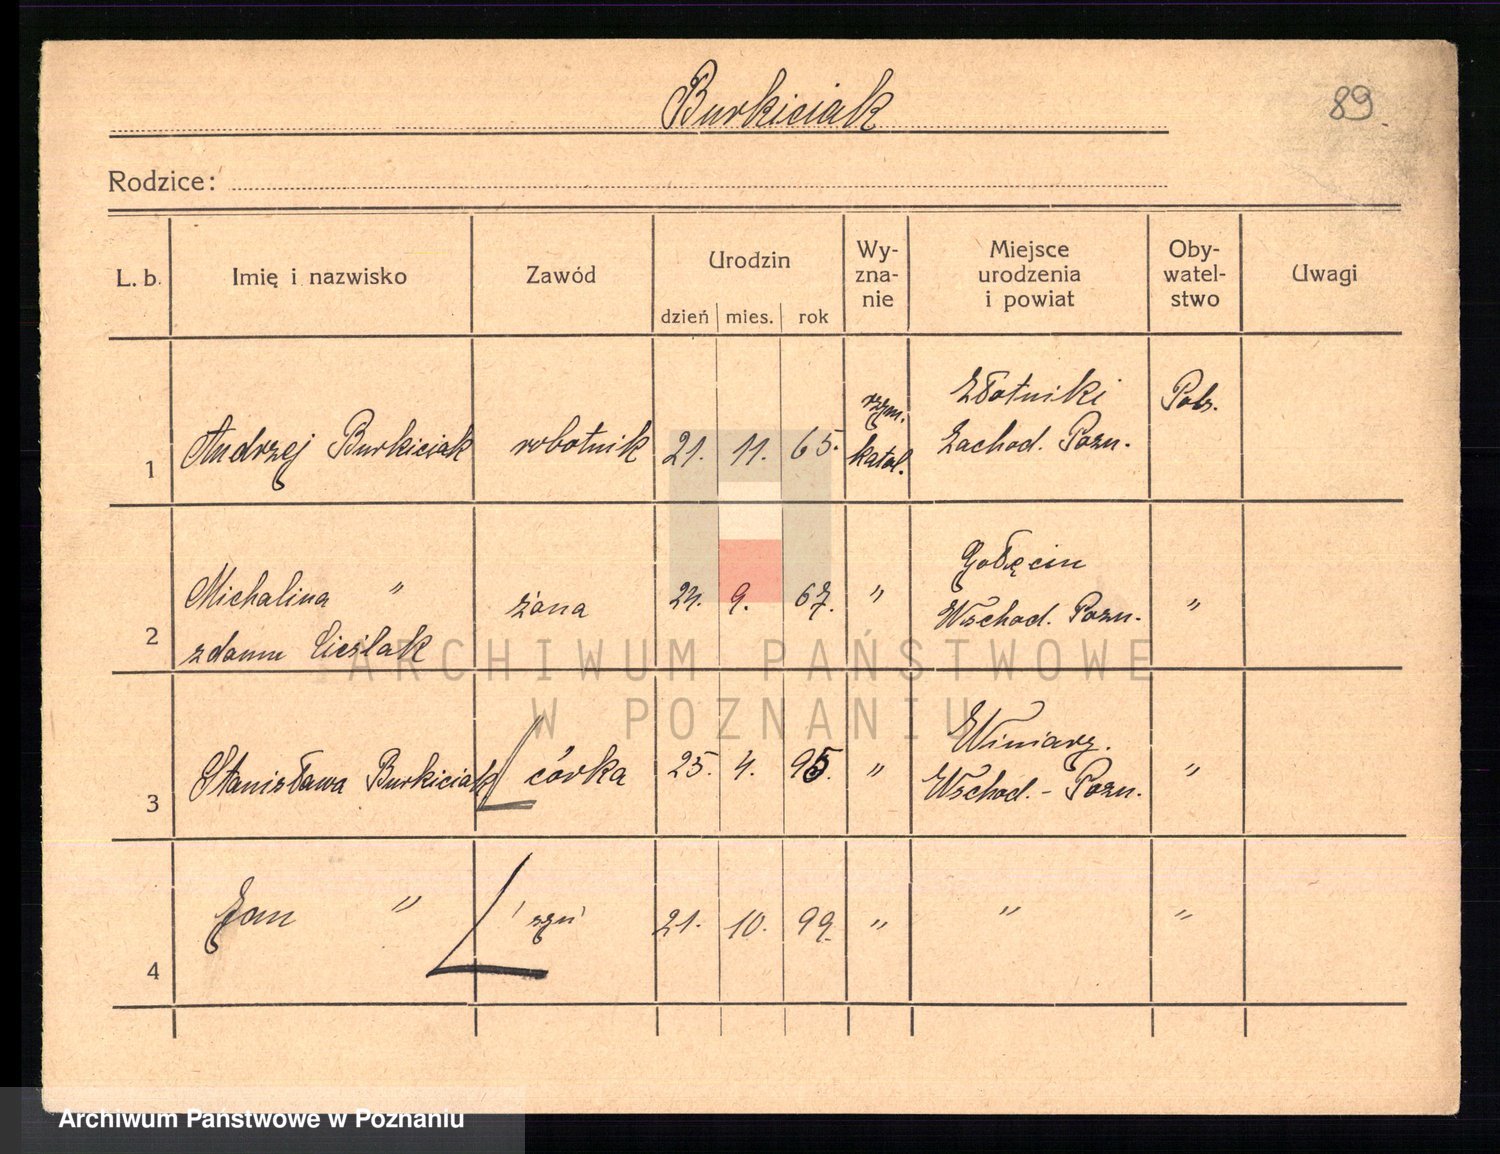 Burkiciak
89.
Rodzice:
L. b.
Imię i nazwisko
Zawód
Urodzin
dzień mies. rok
Wy-
zna-
nie
Miejsce
urodzenia
i powiat
Oby-
watel-
stwo
Uwagi
1 Andrzej Burkiciak robotnik 21. 11. 65.
rzym.
katol.
Złotniki
Zachod. Pozn.
Pols.
2
Michalina "
zdomu Cieślak
żona 9. 67. "
Golęcin
Wschod. Pozn.
"
3 Stanisława Burkiciak córka 25. 4. 95. "
Winiary.
Wschod. - Pozn.
"
4 Jan " syn 21. 10. 99. " " "
ARCHIWUM PAŃSTWOWE
W POZNANIU
Archiwum Państwowe w Poznaniu